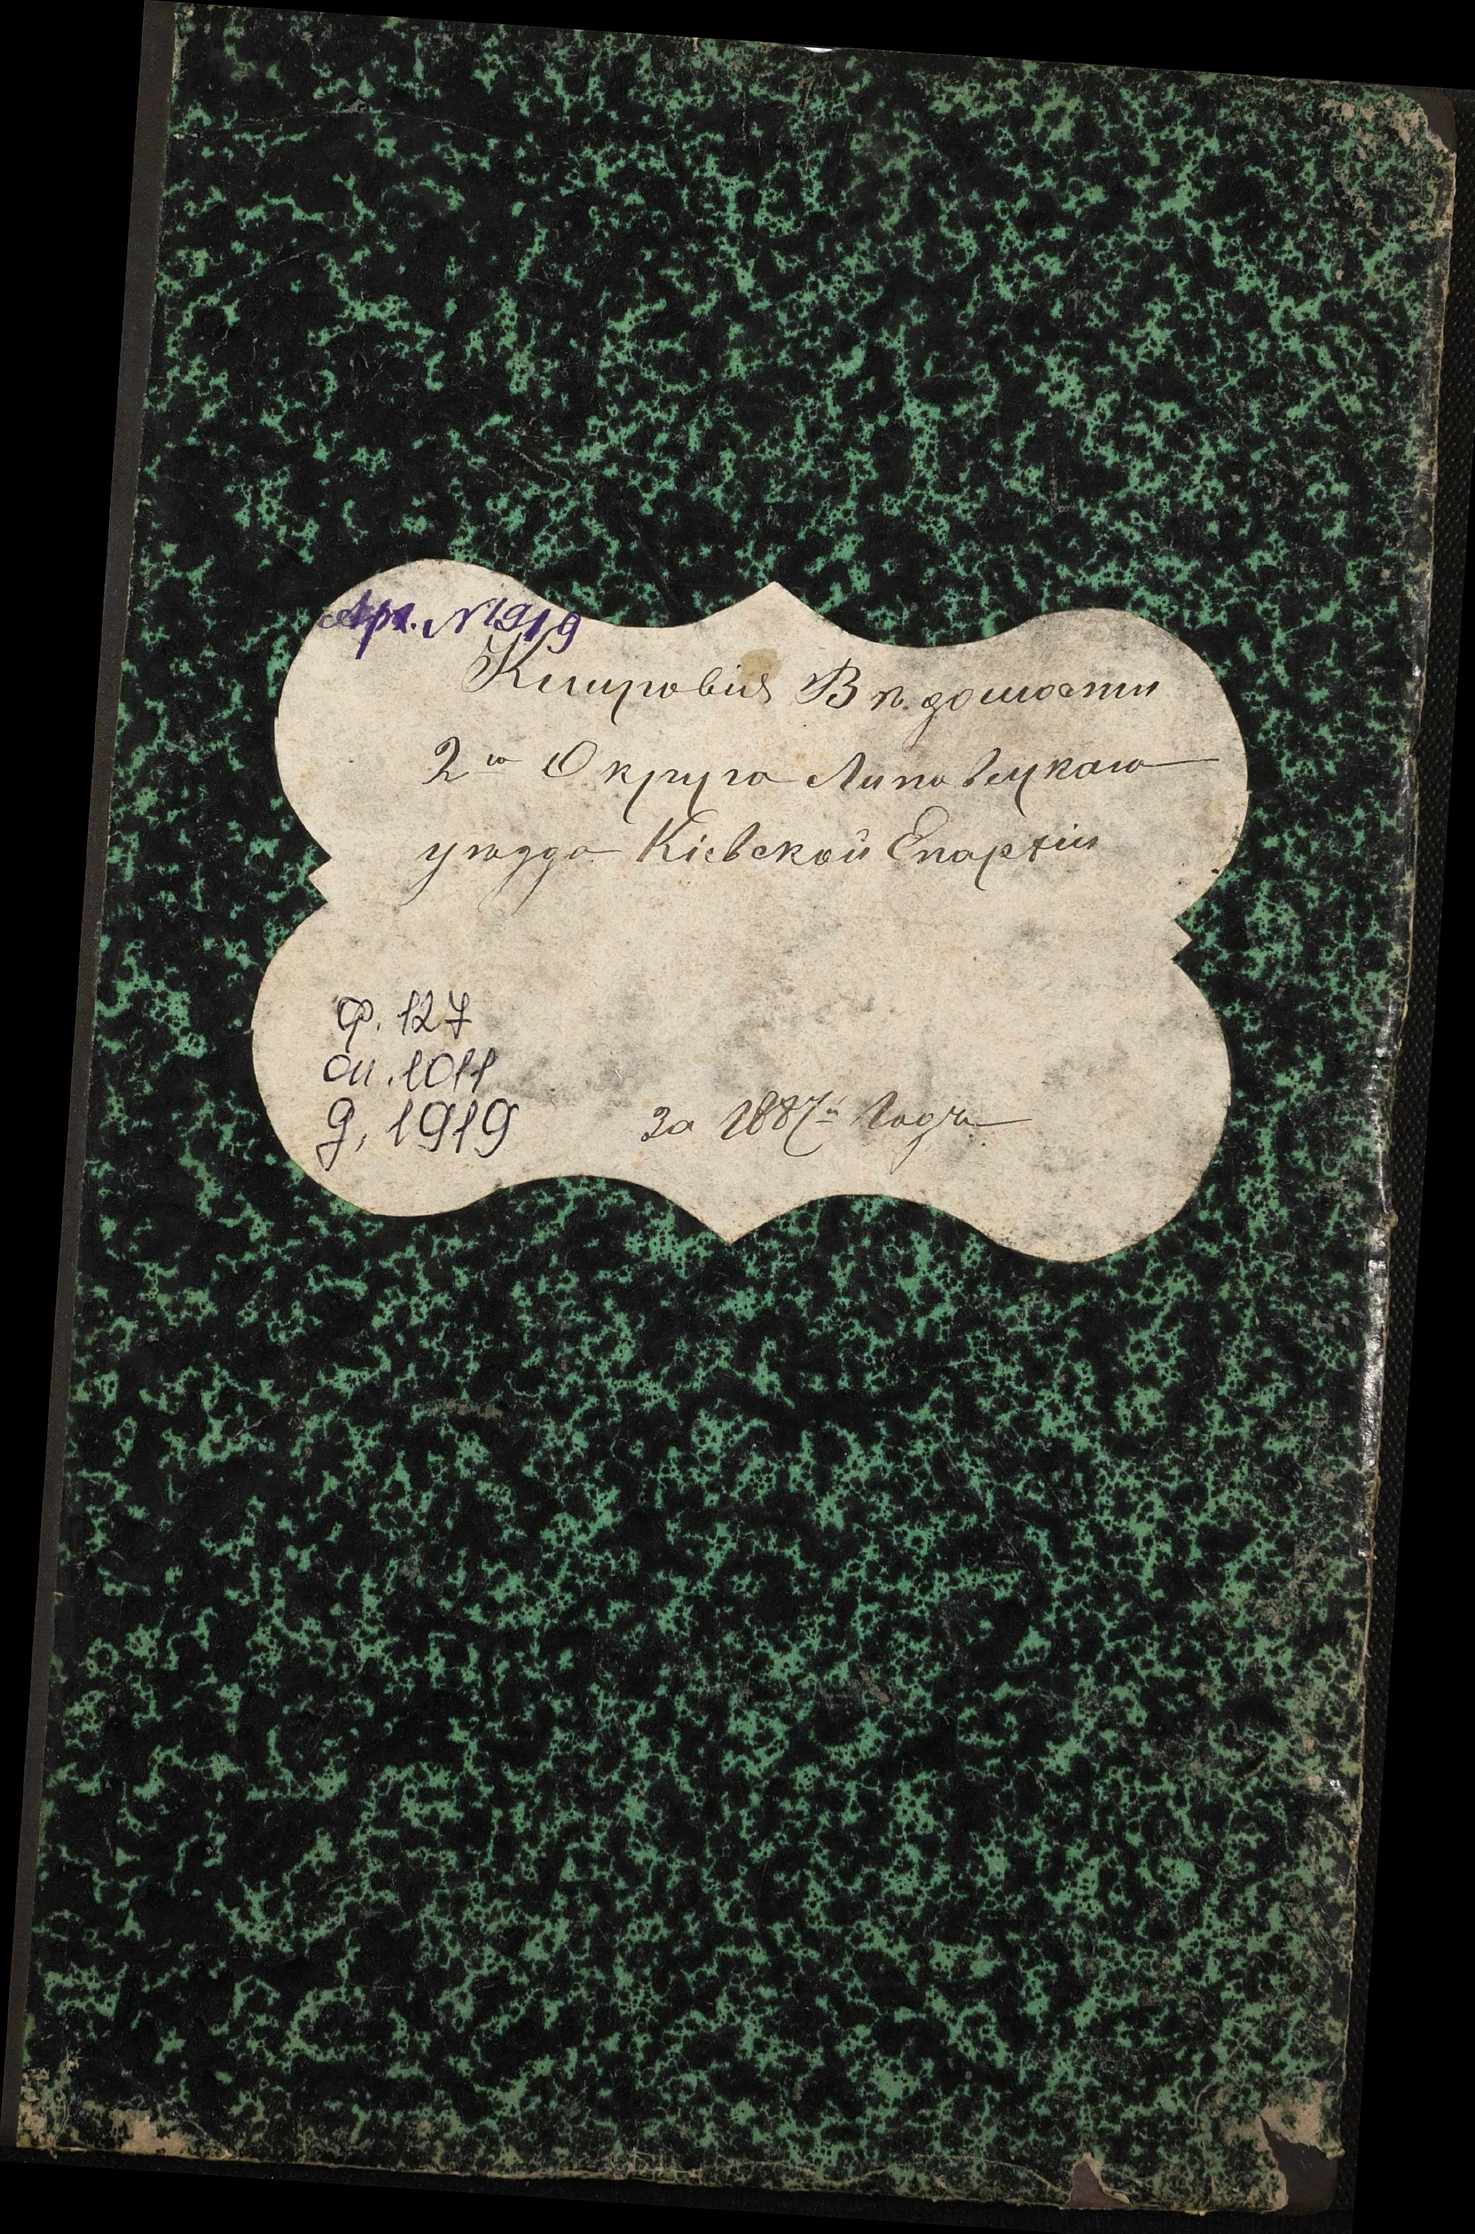 Арх. №1919
Клировыя Вѣдомости
2го Округа Липовецкаго
уѣзда Кіевской Епархіи
ф. 127
оп. 1011
д. 1919
За 1887й Годъ.